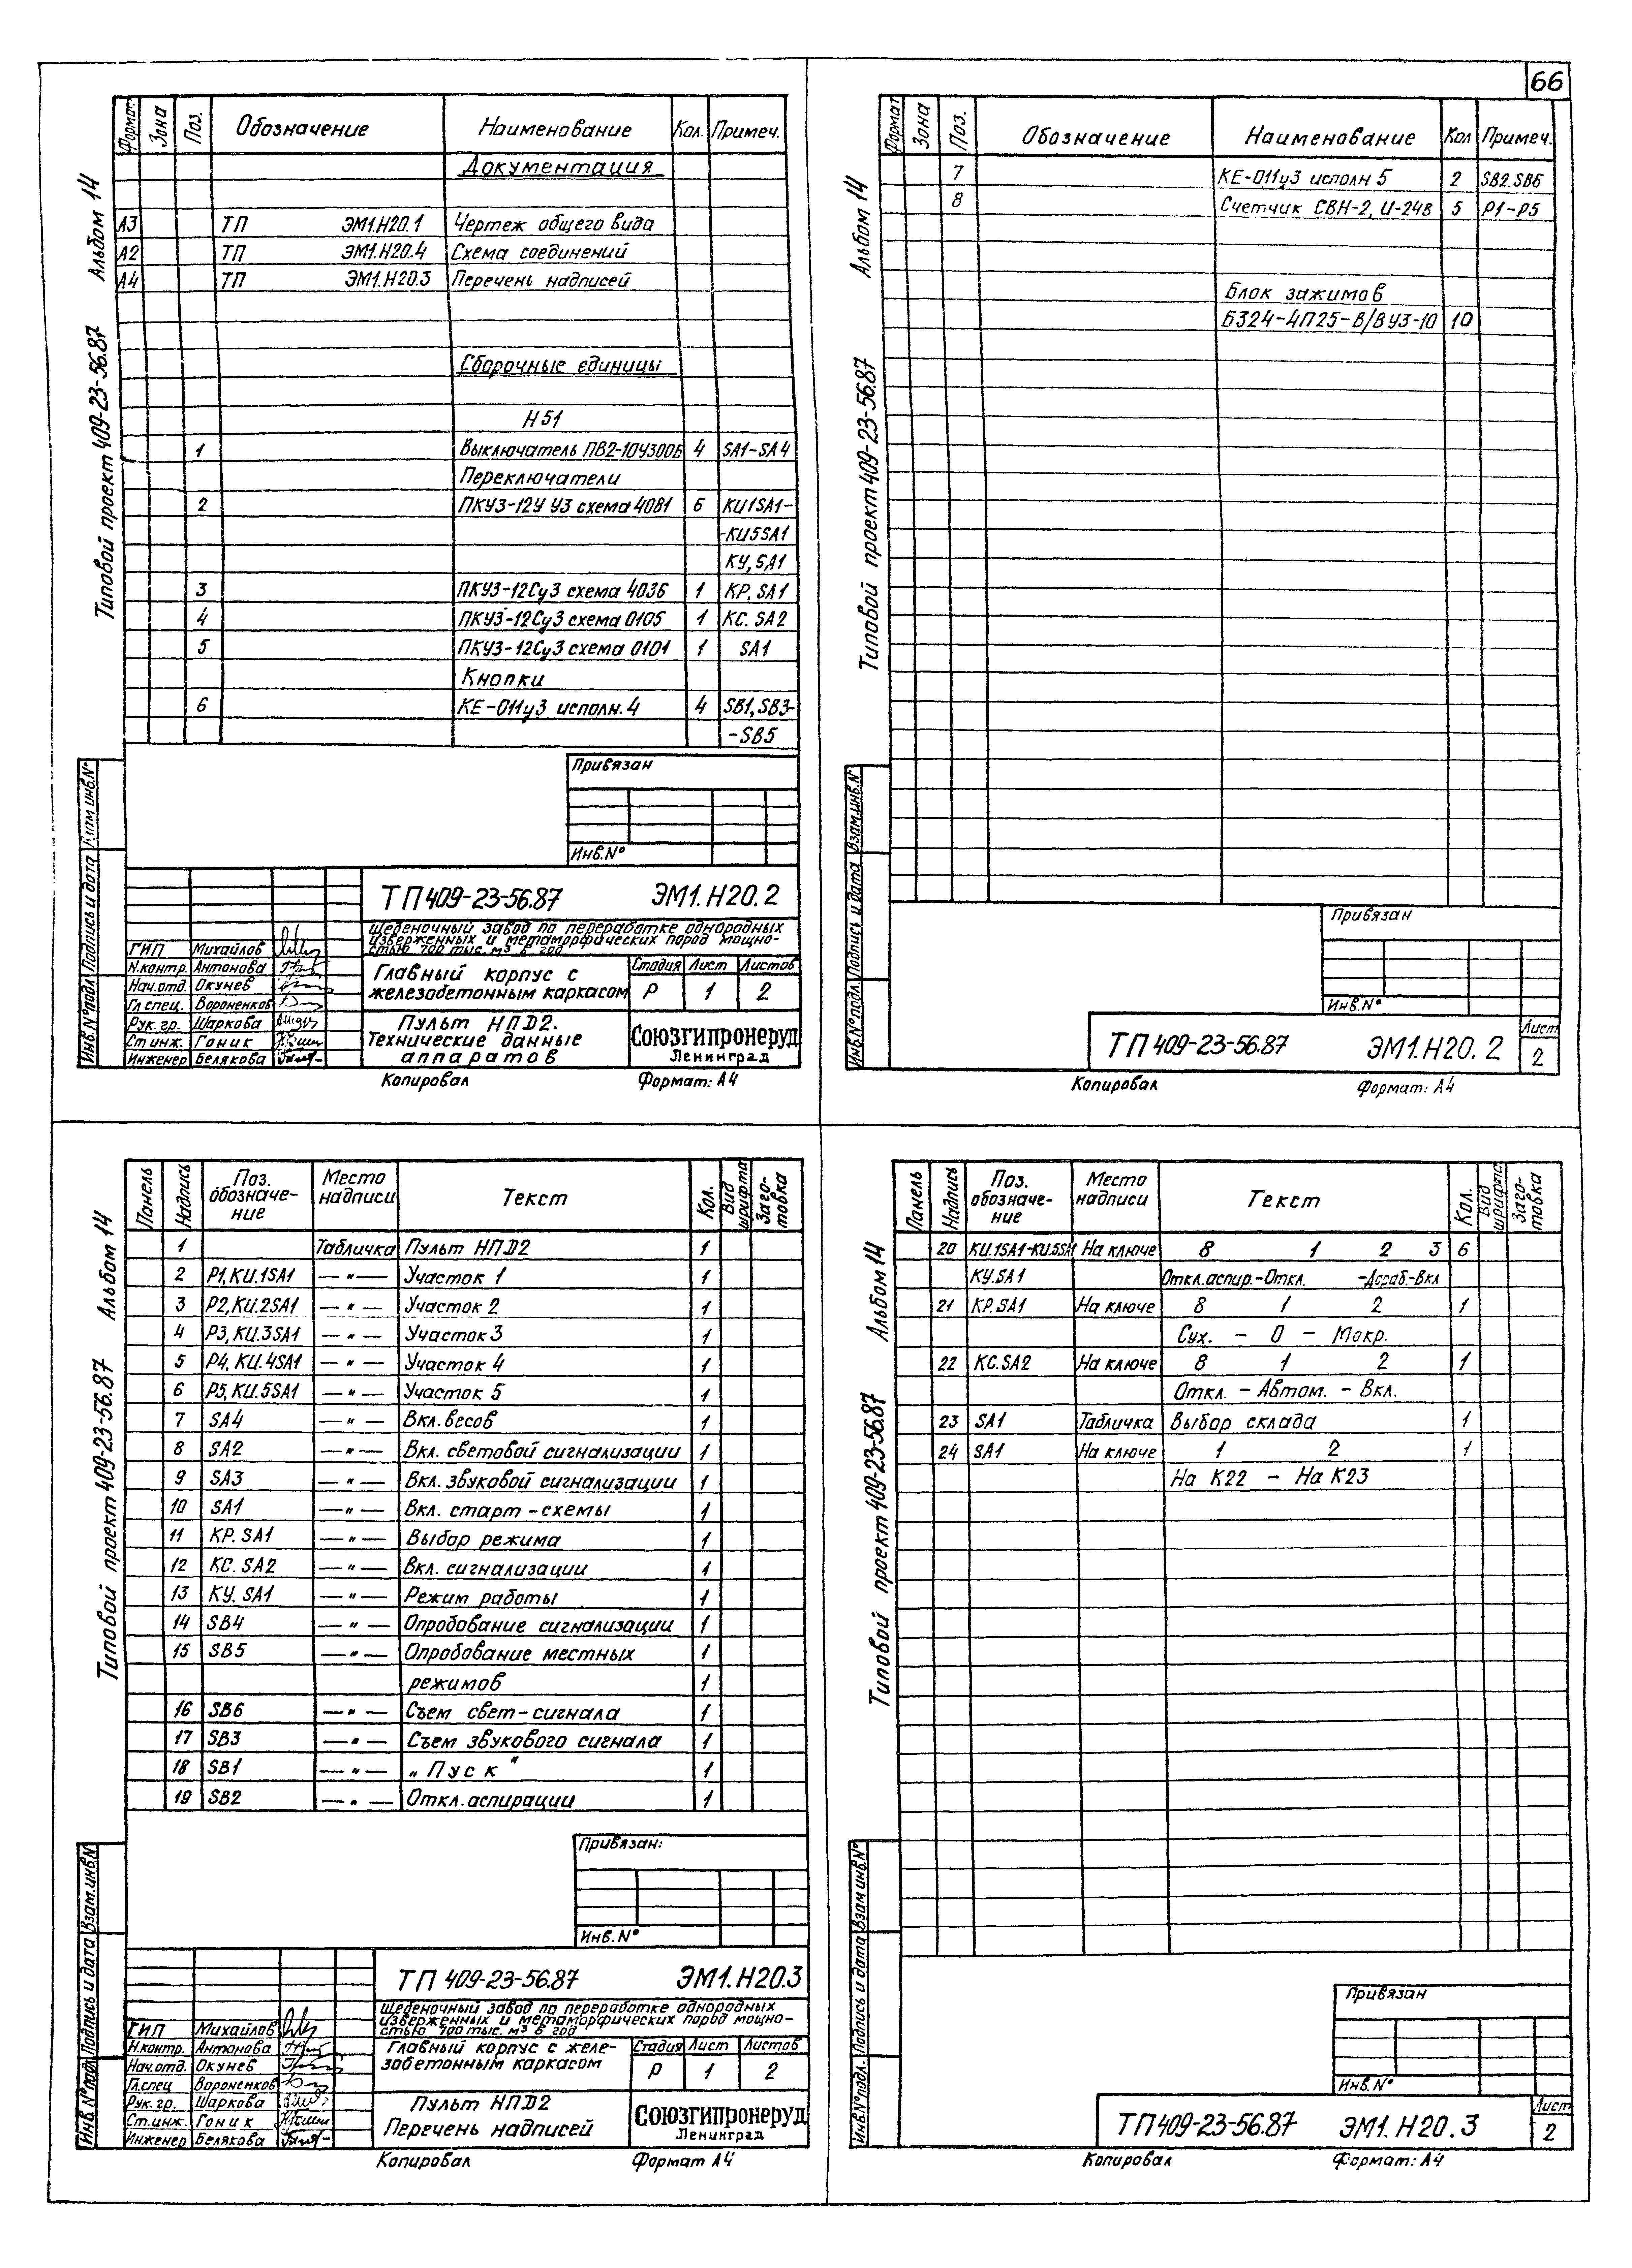 66
Альбом 14
Типовой проект 409-23-56.87
Формат. Зона Поз. Обозначение Наименование Кол. Примеч.
Документация
А3 ТП ЭМ1.Н20.1 Чертеж общего вида
А2 ТП ЭМ1.Н20.4 Схема соединений
А4 ТП ЭМ1.Н20.3 Перечень надписей
Сборочные единицы
Н51
1 Выключатель ПВ2-10У300Б 4 SA1-SA4
Переключатели
2 ПКУ3-12У У3 схема 4081 6 КU1SA1-
-КU5SA1
КУ,SA1
3 ПКУ3-12Су3 схема 4036 1 КР.SA1
4 ПКУ3-12Су3 схема 0105 1 КС.SA2
5 ПКУ3-12Су3 схема 0101 1 SA1
Кнопки
6 КЕ-011у3 исполн.4 4 SB1,SB3-
-SB5
Привязан
Инв.N°
Инв.N°подл. Подпись и дата Взам.инв.N°
ТП409-23-56.87 ЭМ1.Н20.2
Щебеночный завод по переработке однородных
изверженных и метаморфических пород мощно-
стью 700 тыс. м³ в год
ГИП Михайлов
Н.контр. Антонова
Нач.отд. Окунев
Гл.спец. Вороненков
Рук.гр. Шаркова
Ст.инж. Гоник
Инженер Белякова
Главный корпус с
железобетонным каркасом
Стадия Лист Листов
Р 1 2
Пульт НПД2.
Технические данные
аппаратов
Союзгипронеруд
Ленинград
Копировал Формат: А4
Альбом 14
Типовой проект 409-23-56.87
Формат Зона Поз. Обозначение Наименование Кол Примеч.
7 КЕ-011у3 исполн 5 2 SB2.SB6
8 Счетчик СВН-2, U-24В 5 Р1-Р5
Блок зажимов
Б324-4П25-В/ВУ3-10 10
Привязан
Инв.N°
Инв.N°подл. Подпись и дата Взам.инв.N°
ТП409-23-56.87 ЭМ1.Н20.2
Лист
2
Копировал Формат: А4
Альбом 14
Типовой проект 409-23-56.87
Панель Надпись Поз. обозначе-ние Место надписи Текст Кол. Вид шрифта Заго-товка
1 Табличка Пульт НПД2 1
2 Р1,КU.1SA1 —"— Участок 1 1
3 Р2,КU.2SA1 —"— Участок 2 1
4 Р3,КU.3SA1 —"— Участок 3 1
5 Р4,КU.4SA1 —"— Участок 4 1
6 Р5,КU.5SA1 —"— Участок 5 1
7 SA4 —"— Вкл.весов 1
8 SA2 —"— Вкл. световой сигнализации 1
9 SA3 —"— Вкл. звуковой сигнализации 1
10 SA1 —"— Вкл. старт-схемы 1
11 КР.SA1 —"— Выбор режима 1
12 КС.SA2 —"— Вкл. сигнализации 1
13 КУ.SA1 —"— Режим работы 1
14 SB4 —"— Опробование сигнализации 1
15 SB5 —"— Опробование местных 1
режимов 1
16 SB6 —"— Съем свет-сигнала 1
17 SB3 —"— Съем звукового сигнала 1
18 SB1 —"— „Пуск" 1
19 SB2 —"— Откл.аспирации 1
Привязан:
Инв.N°
Инв.N°подл. Подпись и дата Взам.инв.N°
ТП 409-23-56.87 ЭМ1.Н20.3
Щебеночный завод по переработке однородных
изверженных и метаморфических пород мощно-
стью 700 тыс. м³ в год
ГИП Михайлов
Н.контр. Антонова
Нач.отд. Окунев
Гл.спец Вороненков
Рук.гр. Шаркова
Ст.инж. Гоник
Инженер Белякова
Главный корпус с желе-
зобетонным каркасом
Стадия Лист Листов
Р 1 2
Пульт НПД2
Перечень надписей
Союзгипронеруд
Ленинград
Копировал Формат А4
Альбом 14
Типовой проект 409-23-56.87
Панель Надпись Поз. обозначе-ние Место надписи Текст Кол. Вид шрифта Заго-товка
20 КU.1SA1-КU.5SA1 На ключе 8 1 2 3 6
КУ.SA1 Откл.аспир.-Откл. -Дораб.-Вкл
21 КР.SA1 На ключе 8 1 2 1
Сух. - 0 - Мокр.
22 КС.SA2 На ключе 8 1 2 1
Откл. - Автом. - Вкл.
23 SA1 Табличка Выбор склада 1
24 SA1 На ключе 1 2 1
На К22 - На К23
Привязан
Инв.N°
Инв.N°подл. Подпись и дата Взам инв.N°
ТП409-23-56.87 ЭМ1.Н20.3
Лист
2
Копировал Формат: А4